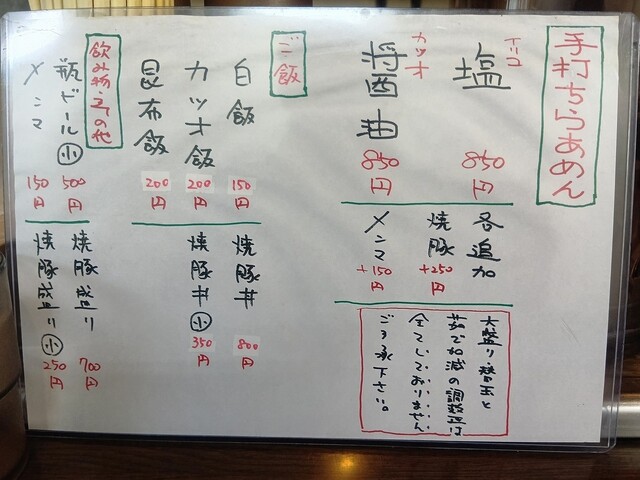 手打ちらあめん
イリコ
塩
850円
カツオ
醤油
850円
各追加
焼豚
+250円
メンマ
+150円
大盛り・替玉と
茹で加減の調整は
全てしておりません
ご了承下さい。
ご飯
白飯
150円
カツオ飯
200円
昆布飯
200円
焼豚丼
800円
焼豚丼 小
350円
飲み物・その他
瓶ビール 小
500円
メンマ
150円
焼豚盛り
700円
焼豚盛り 小
250円